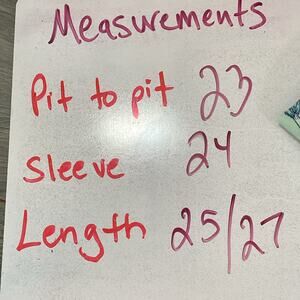 Measurements
Pit to pit 23
Sleeve 24
Length 25/27